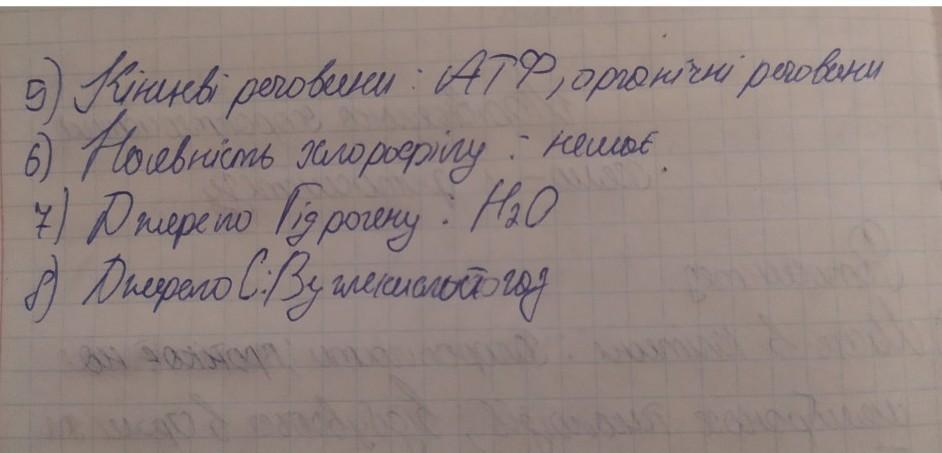 5) Кінцеві речовини : АТФ, органічні речовини
6) Наявність хлорофілу : немає
7) Джерело Гідрогену : H2O
8) Джерело С: Вуглекислий газ